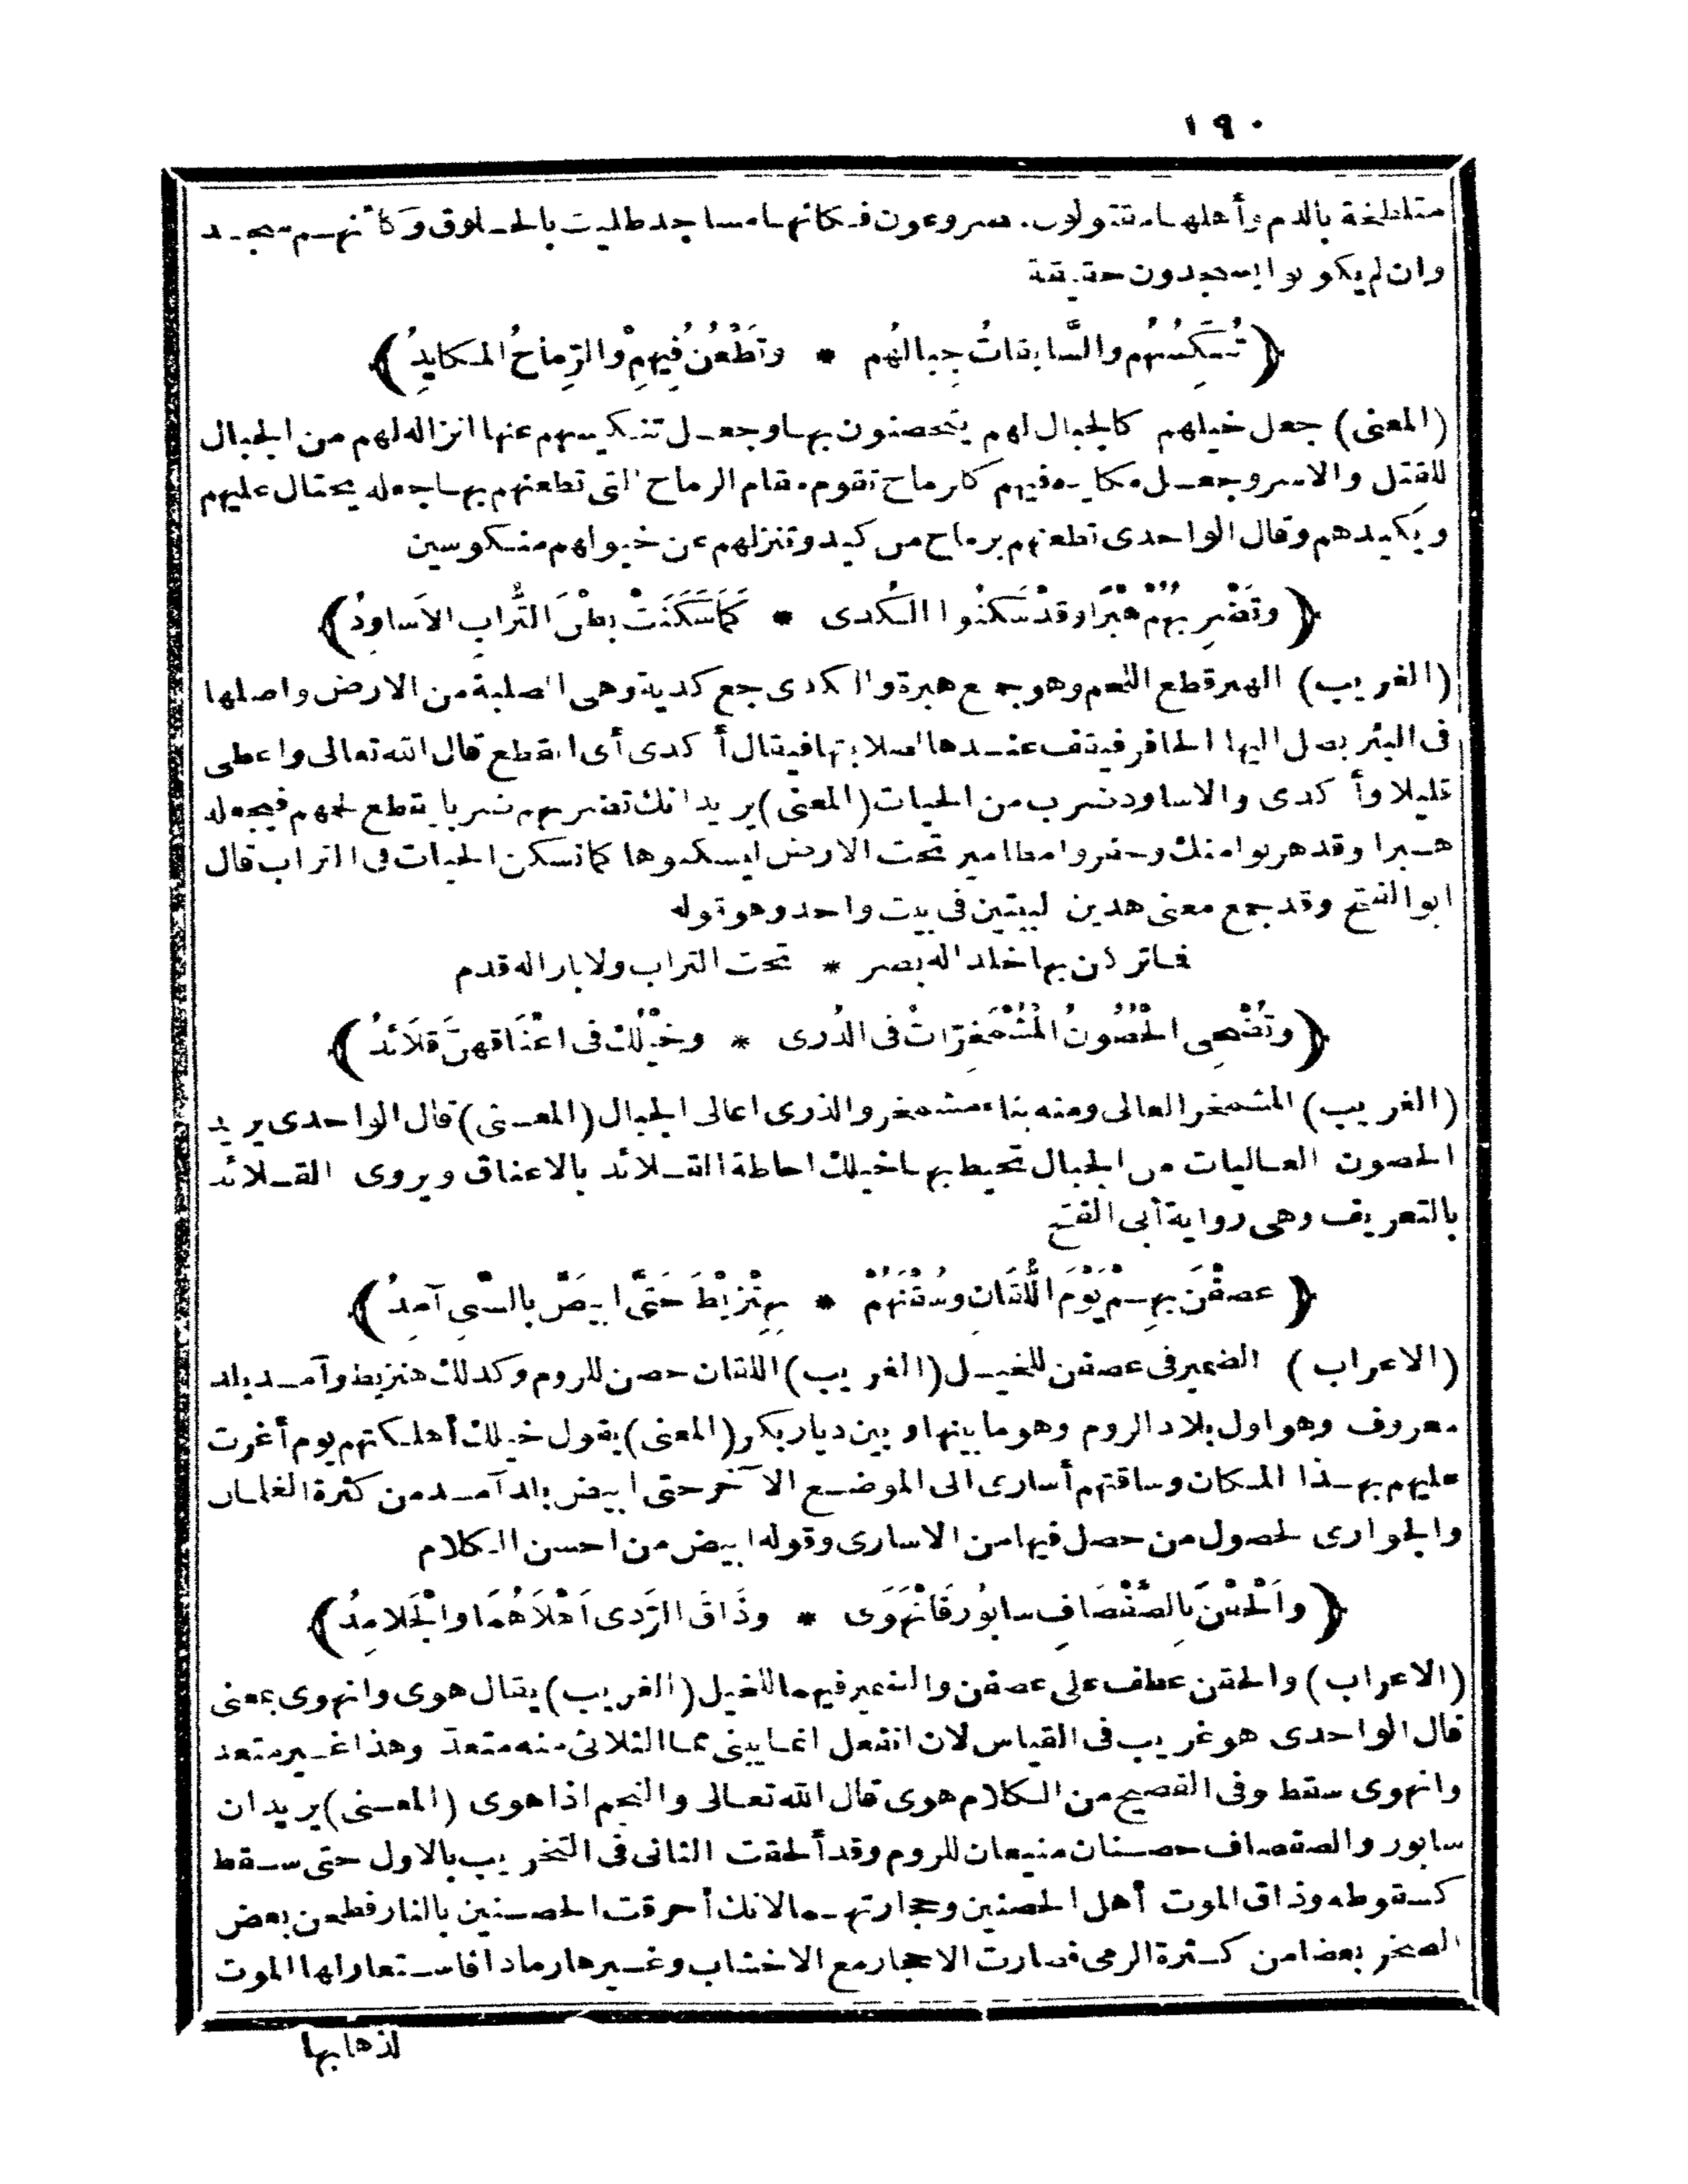 ١٩٠
متلطخة بالدم وأهلها مقتولون مصروعون فكانها مساجد طليت بالخلوق وكأنهم سجد
وان لم يكونوا يسجدون حقيقة
﴿تُنَكِّسُهُم والسَّابِقاتُ جِبالُهُم * وتَطْعُنُ فِيهِمْ والرِّماحُ المكايِدُ﴾
(المعنى) جعل خيلهم كالجبال لهم يتحصنون بها وجعل تنكيسهم عنها انزاله لهم من الجبال
للقتل والاسر وجعل مكايده فيهم كارماح تقوم مقام الرماح التى تطعنهم بها جعله يحتال عليهم
ويكيدهم وقال الواحدى تطعنهم برماح من كيد وتنزلهم عن خيولهم منكوسين
﴿وتَضْرِبُهُمْ هَبْرًا وقَدْ سَكَنُوا الكُدى * كَمَا سَكَنَتْ بطْنَ التُّرابِ الاَساوِدُ﴾
(الغريب) الهبر قطع اللحم وهو جمع هبرة والكدى جمع كدية وهى الصلبة من الارض واصلها
فى البئر يصل اليها الحافر فيقف عندها لصلابتها فيقال أكدى أى انقطع قال الله تعالى واعطى
قليلا وأكدى والاساود ضرب من الحيات (المعنى) يريد انك تضربهم ضربا يقطع لحمهم فيجعله
هبرا وقد هربوا منك وحفروا مطامير تحت الارض ليسكنوها كما تسكن الحيات فى التراب قال
ابو الفتح وقد جمع معنى هذين البيتين فى بيت واحد وهو قوله
فما تركن بها خلدا له بصر * تحت التراب ولا بازا له قدم
﴿وتُضْحِى الحُصُونُ المُشْمَخِرّاتُ فى الذُرى * وخَيْلُكَ فى اعْنَاقِهِنَّ قَلَائدُ﴾
(الغريب) المشمخر العالى ومنه بناء مشمخر والذرى اعالى الجبال (المعنى) قال الواحدى يريد
الحصون العاليات من الجبال تحيط بها خيلك احاطة القلائد بالاعناق ويروى القلائد
بالتعريف وهى رواية أبى الفتح
﴿عصفْنَ بهِمْ يَوْمَ اللُّقَانِ وسُقْنَهُمْ * بِهِنْزِيْطَ حَتَّى ابيَضَّ بالسَّبْىِ آمِدُ﴾
(الاعراب) الضمير فى عصفن للخيل (الغريب) اللقان حصن للروم وكذلك هنزيط وآمد بلد
معروف وهو اول بلاد الروم وهو ما بينها وبين ديار بكر (المعنى) يقول خيلك أهلكتهم يوم أغرت
عليهم بهذا المكان وساقتهم أسارى الى الموضع الآخر حتى ابيض بلد آمد من كثرة الغلمان
والجوارى لحصول من حصل فيها من الاسارى وقوله ابيض من احسن الكلام
﴿واَلْحَقْنَ بِالصَّفْصَافِ سابُورَ فَانْهَوَى * وذَاقَ الرَّدى اَهْلاَهُمَا والْجَلامِدُ﴾
(الاعراب) والحقن عطف على عصفن والضمير فيهما للخيل (الغريب) يقال هوى وانهوى بمعنى
قال الواحدى هو غريب فى القياس لان انفعل انما يبنى مما الثلاثى منه متعد وهذا غير متعد
وانهوى سقط وفى الفصيح من الكلام هوى قال الله تعالى والنجم اذا هوى (المعنى) يريد ان
سابور والصفصاف حصنان منيعان للروم وقد ألحقت الثانى فى التخريب بالاول حتى سقط
كسقوطه وذاق الموت أهل الحصنين وحجارتهما لانك أحرقت الحصنين بالنار فطعن بعض
الصخر بعضا من كثرة الرمى فصارت الاحجار مع الاخشاب وغيرها رمادا فاستعار لها الموت
لذهابها